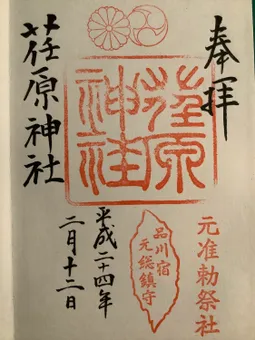 奉拝
元准勅祭社
荏原
神社
品川宿
元総鎮守
平成二十四年
二月十二日
荏原神社